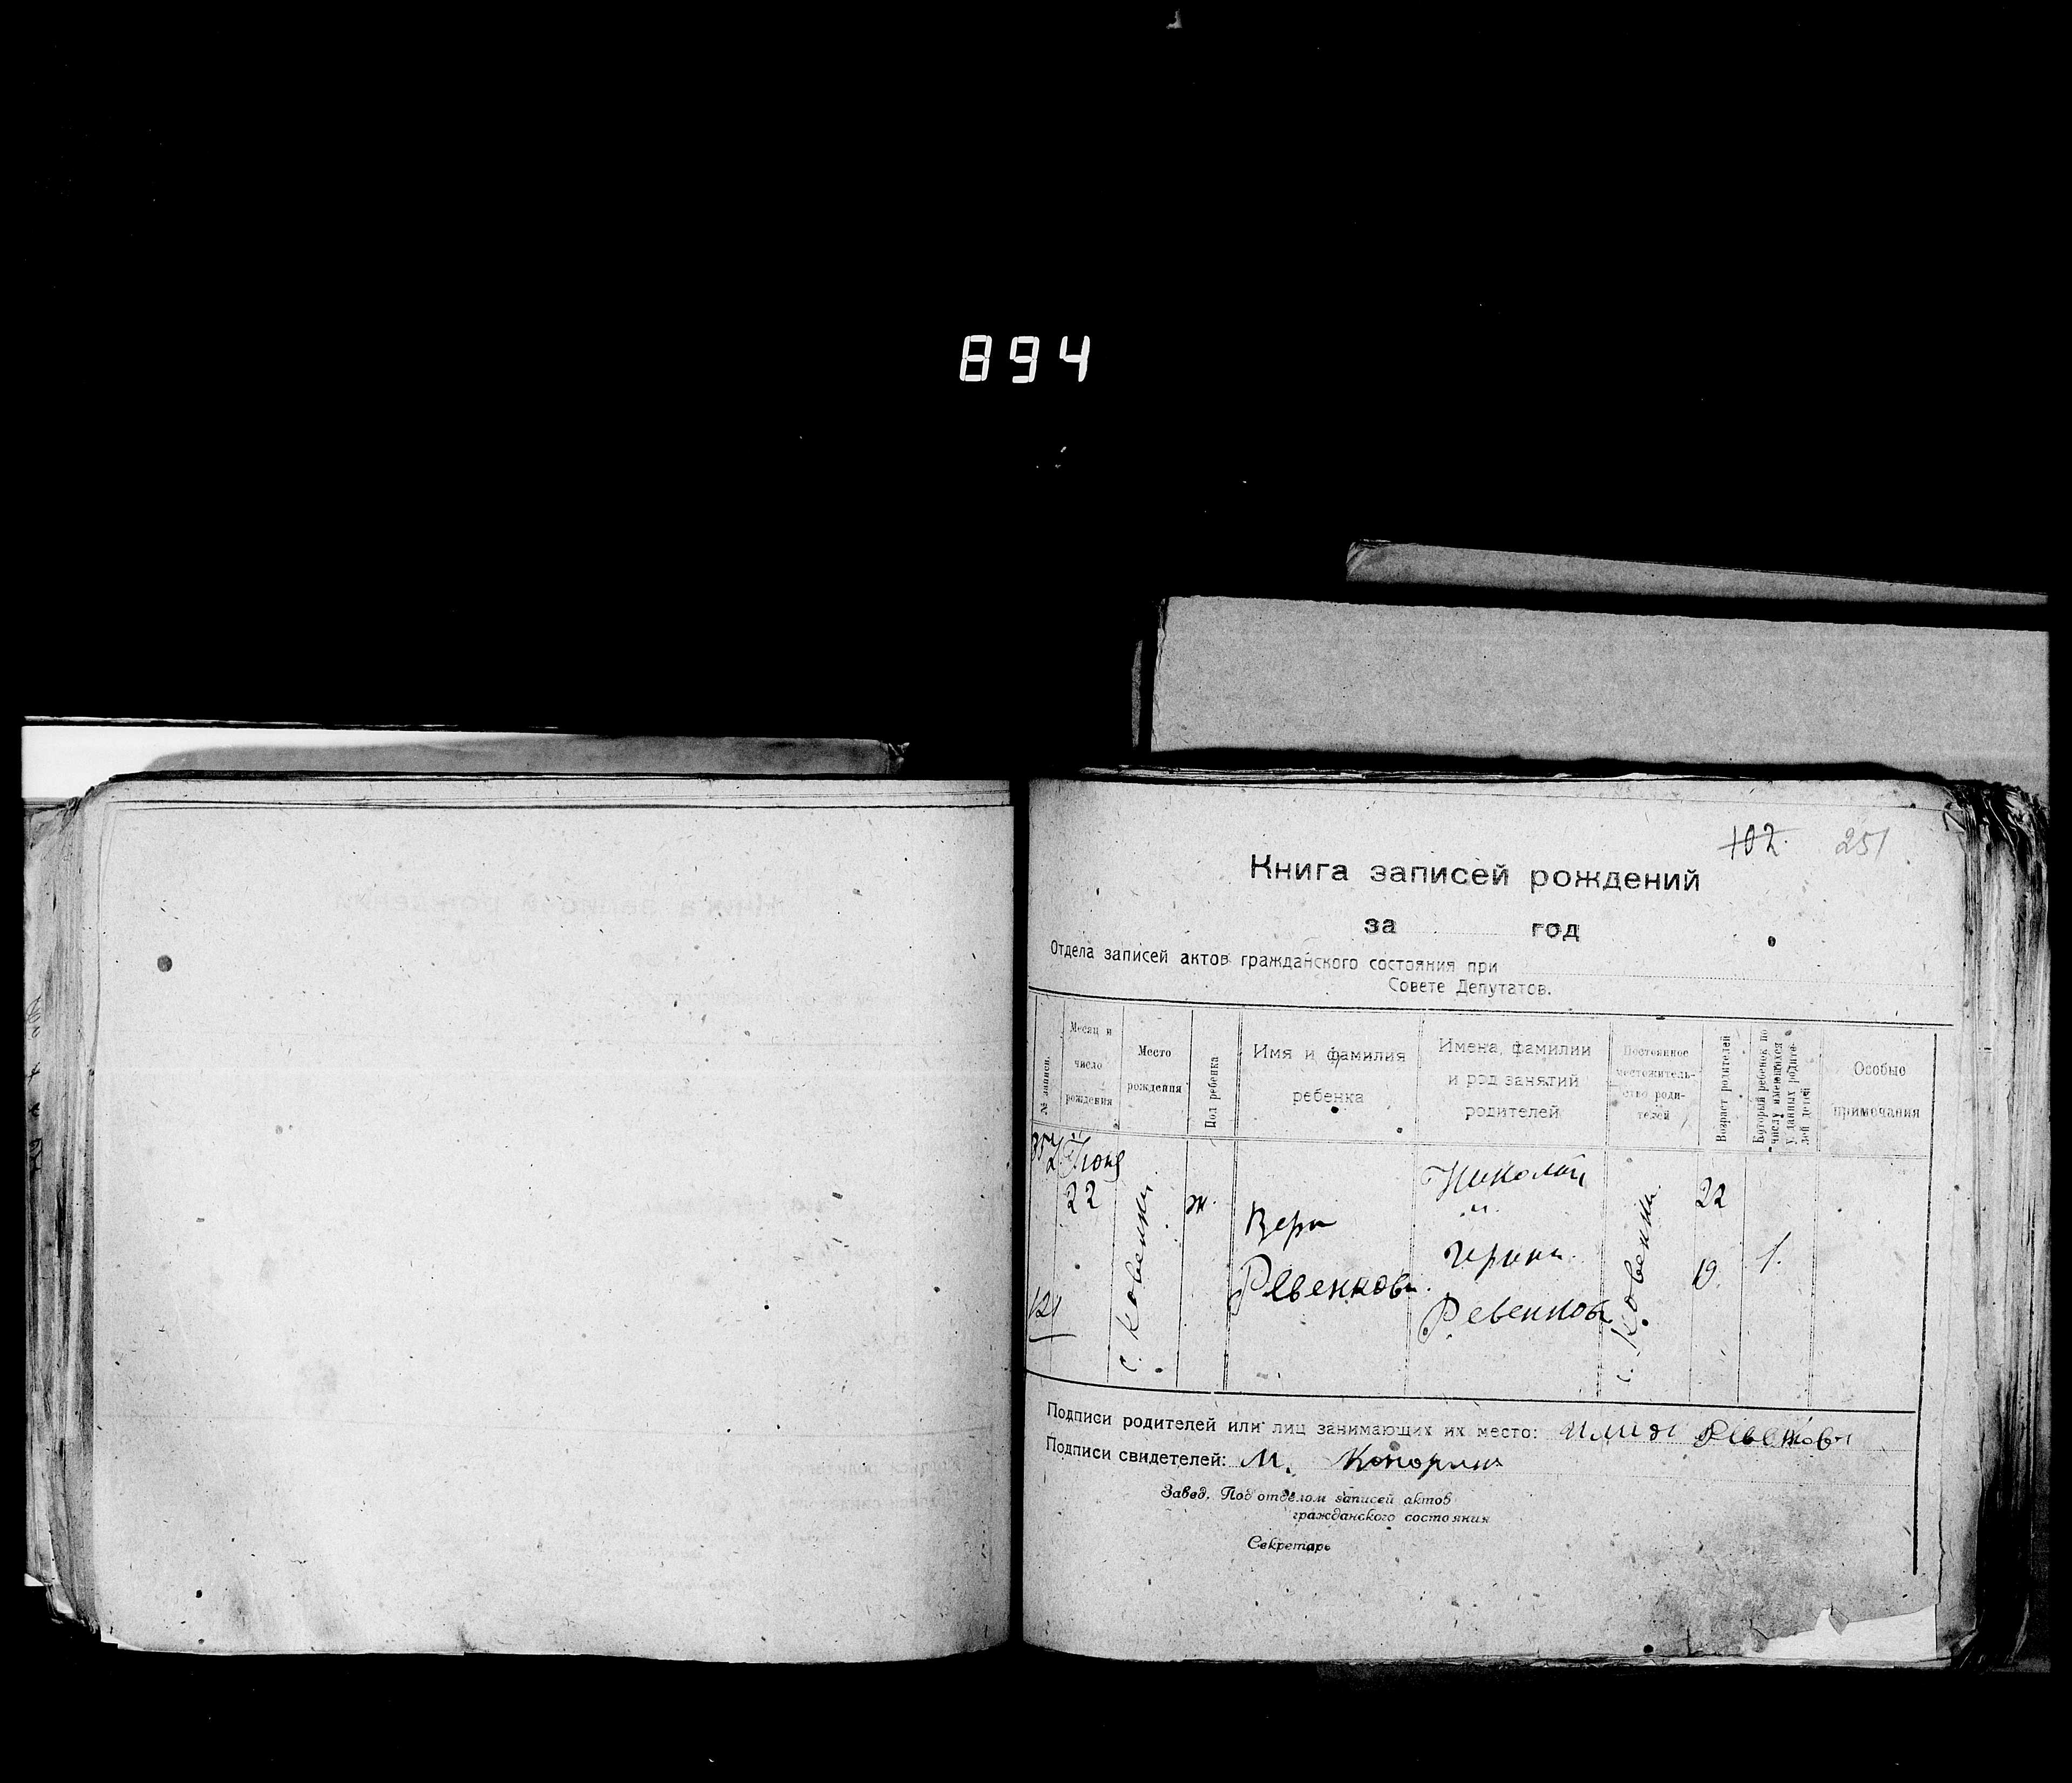 894
102 251
Книга записей рождений
за год
Отдела записей актов гражданского состояния при
Совете Депутатов.
№ записи.
Месяц и число рождения
Место рождения
Пол ребенка
Имя и фамилия ребенка
Имена, фамилии и род занятий родителей
Постоянное местожительство родителей
Возраст родителей
Который ребенок по числу имеющихся у данных родителей детей
Особые примечания
22
с. Ковенки
ж.
Вера
Ревенкова
Николай
и
Ирина
Ревенков
с. Ковенки
22
19
1.
121
Подписи родителей или лиц занимающих их место:
Подписи свидетелей: М.
Завед. Подотделом записей актов
гражданского состояния
Секретарь